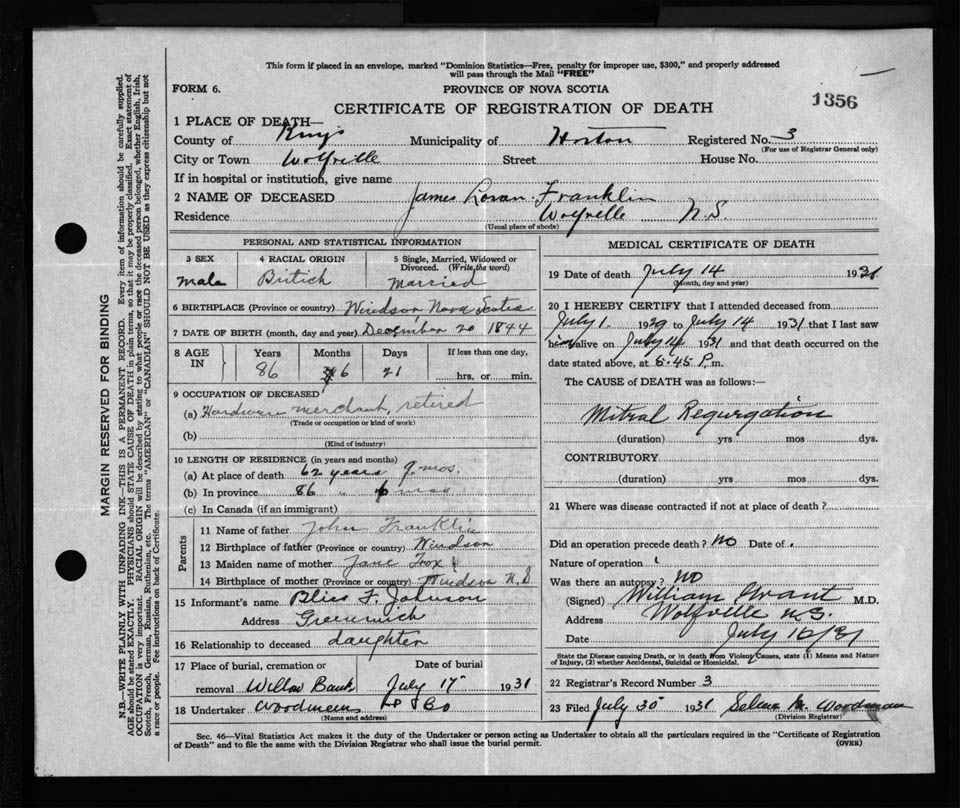 This form if placed in an envelope, marked "Dominion Statistics—Free, penalty for improper use, $300," and properly addressed
will pass through the Mail "FREE"
FORM 6.
PROVINCE OF NOVA SCOTIA
1356
CERTIFICATE OF REGISTRATION OF DEATH
1 PLACE OF DEATH—
County of Kings Municipality of Horton Registered No. 3
(For use of Registrar General only)
City or Town Wolfville Street House No.
If in hospital or institution, give name
2 NAME OF DECEASED James Loran Franklin
Residence Wolfville N.S
(Usual place of abode)
PERSONAL AND STATISTICAL INFORMATION
3 SEX
male
4 RACIAL ORIGIN
Britich
5 Single, Married, Widowed or
Divorced. (Write the word)
Married
6 BIRTHPLACE (Province or country) Windsor Nova Scotia
7 DATE OF BIRTH (month, day and year) December 20 1844
8 AGE IN
Years Months Days If less than one day,
86 6 21 hrs. or min.
9 OCCUPATION OF DECEASED
(a) Hardware merchant, retired
(Trade or occupation or kind of work)
(b)
(Kind of industry)
10 LENGTH OF RESIDENCE (in years and months)
(a) At place of death 62 years 9 mos.
(b) In province 86 " 6 mos
(c) In Canada (if an immigrant)
Parents
11 Name of father John Franklin
12 Birthplace of father (Province or country) Windsor
13 Maiden name of mother Jane Fox
14 Birthplace of mother (Province or country) Windsor N.S
15 Informant's name Bliss F. Johnson
Address Greenwich
16 Relationship to deceased daughter
17 Place of burial, cremation or Date of burial
removal Willow Bank July 17 1931
18 Undertaker Woodmens & Co
(Name and address)
MEDICAL CERTIFICATE OF DEATH
19 Date of death July 14 1931
(Month, day and year)
20 I HEREBY CERTIFY that I attended deceased from
July 1. 1929 to July 14 1931 that I last saw
him alive on July 14 1931 and that death occurred on the
date stated above, at 5.45 P.m.
The CAUSE of DEATH was as follows:—
Mitral Regurgation
(duration) yrs mos dys.
CONTRIBUTORY
(duration) yrs. mos dys.
21 Where was disease contracted if not at place of death?
Did an operation precede death? No Date of
Nature of operation
Was there an autopsy? no
(Signed) William Grant M.D.
Address Wolfville N.S.
Date July 16/31
State the Disease causing Death, or in death from Violent Causes, state (1) Means and Nature
of Injury, (2) whether Accidental, Suicidal or Homicidal.
22 Registrar's Record Number 3
23 Filed July 30 1931 Selena M. Woodman
(Division Registrar)
Sec. 46—Vital Statistics Act makes it the duty of the Undertaker or person acting as Undertaker to obtain all the particulars required in the "Certificate of Registration
of Death" and to file the same with the Division Registrar who shall issue the burial permit.
(OVER)
MARGIN RESERVED FOR BINDING
N.B.—WRITE PLAINLY WITH UNFADING INK—THIS IS A PERMANENT RECORD. Every item of information should be carefully supplied.
AGE should be stated EXACTLY. PHYSICIANS should STATE CAUSE OF DEATH in plain terms, so that it may be properly classified. Exact statement of
OCCUPATION is very important. RACIAL ORIGIN will be described by stating to what people or race the deceased person belonged, whether English, Irish,
Scotch, French, German, Russian, Ruthenian, etc. The terms "AMERICAN" or "CANADIAN" SHOULD NOT BE USED as they express citizenship but not
a race or people. Fee instructions on back of Certificate.